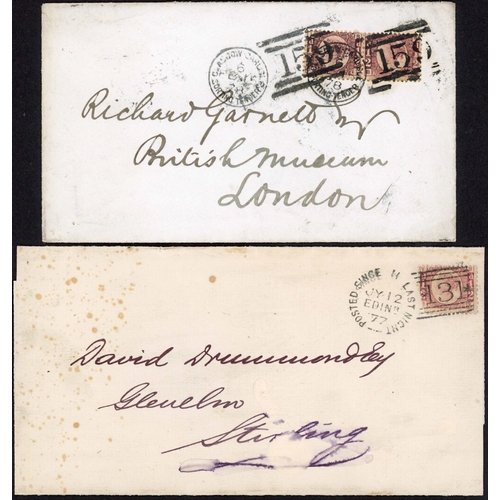 159 159
78
Richard Garnett Esq
British Museum
London
POSTED SINCE H LAST NIGHT
JY 12
EDINR
77
131
David Drummond Esq
Glenelm
Stirling